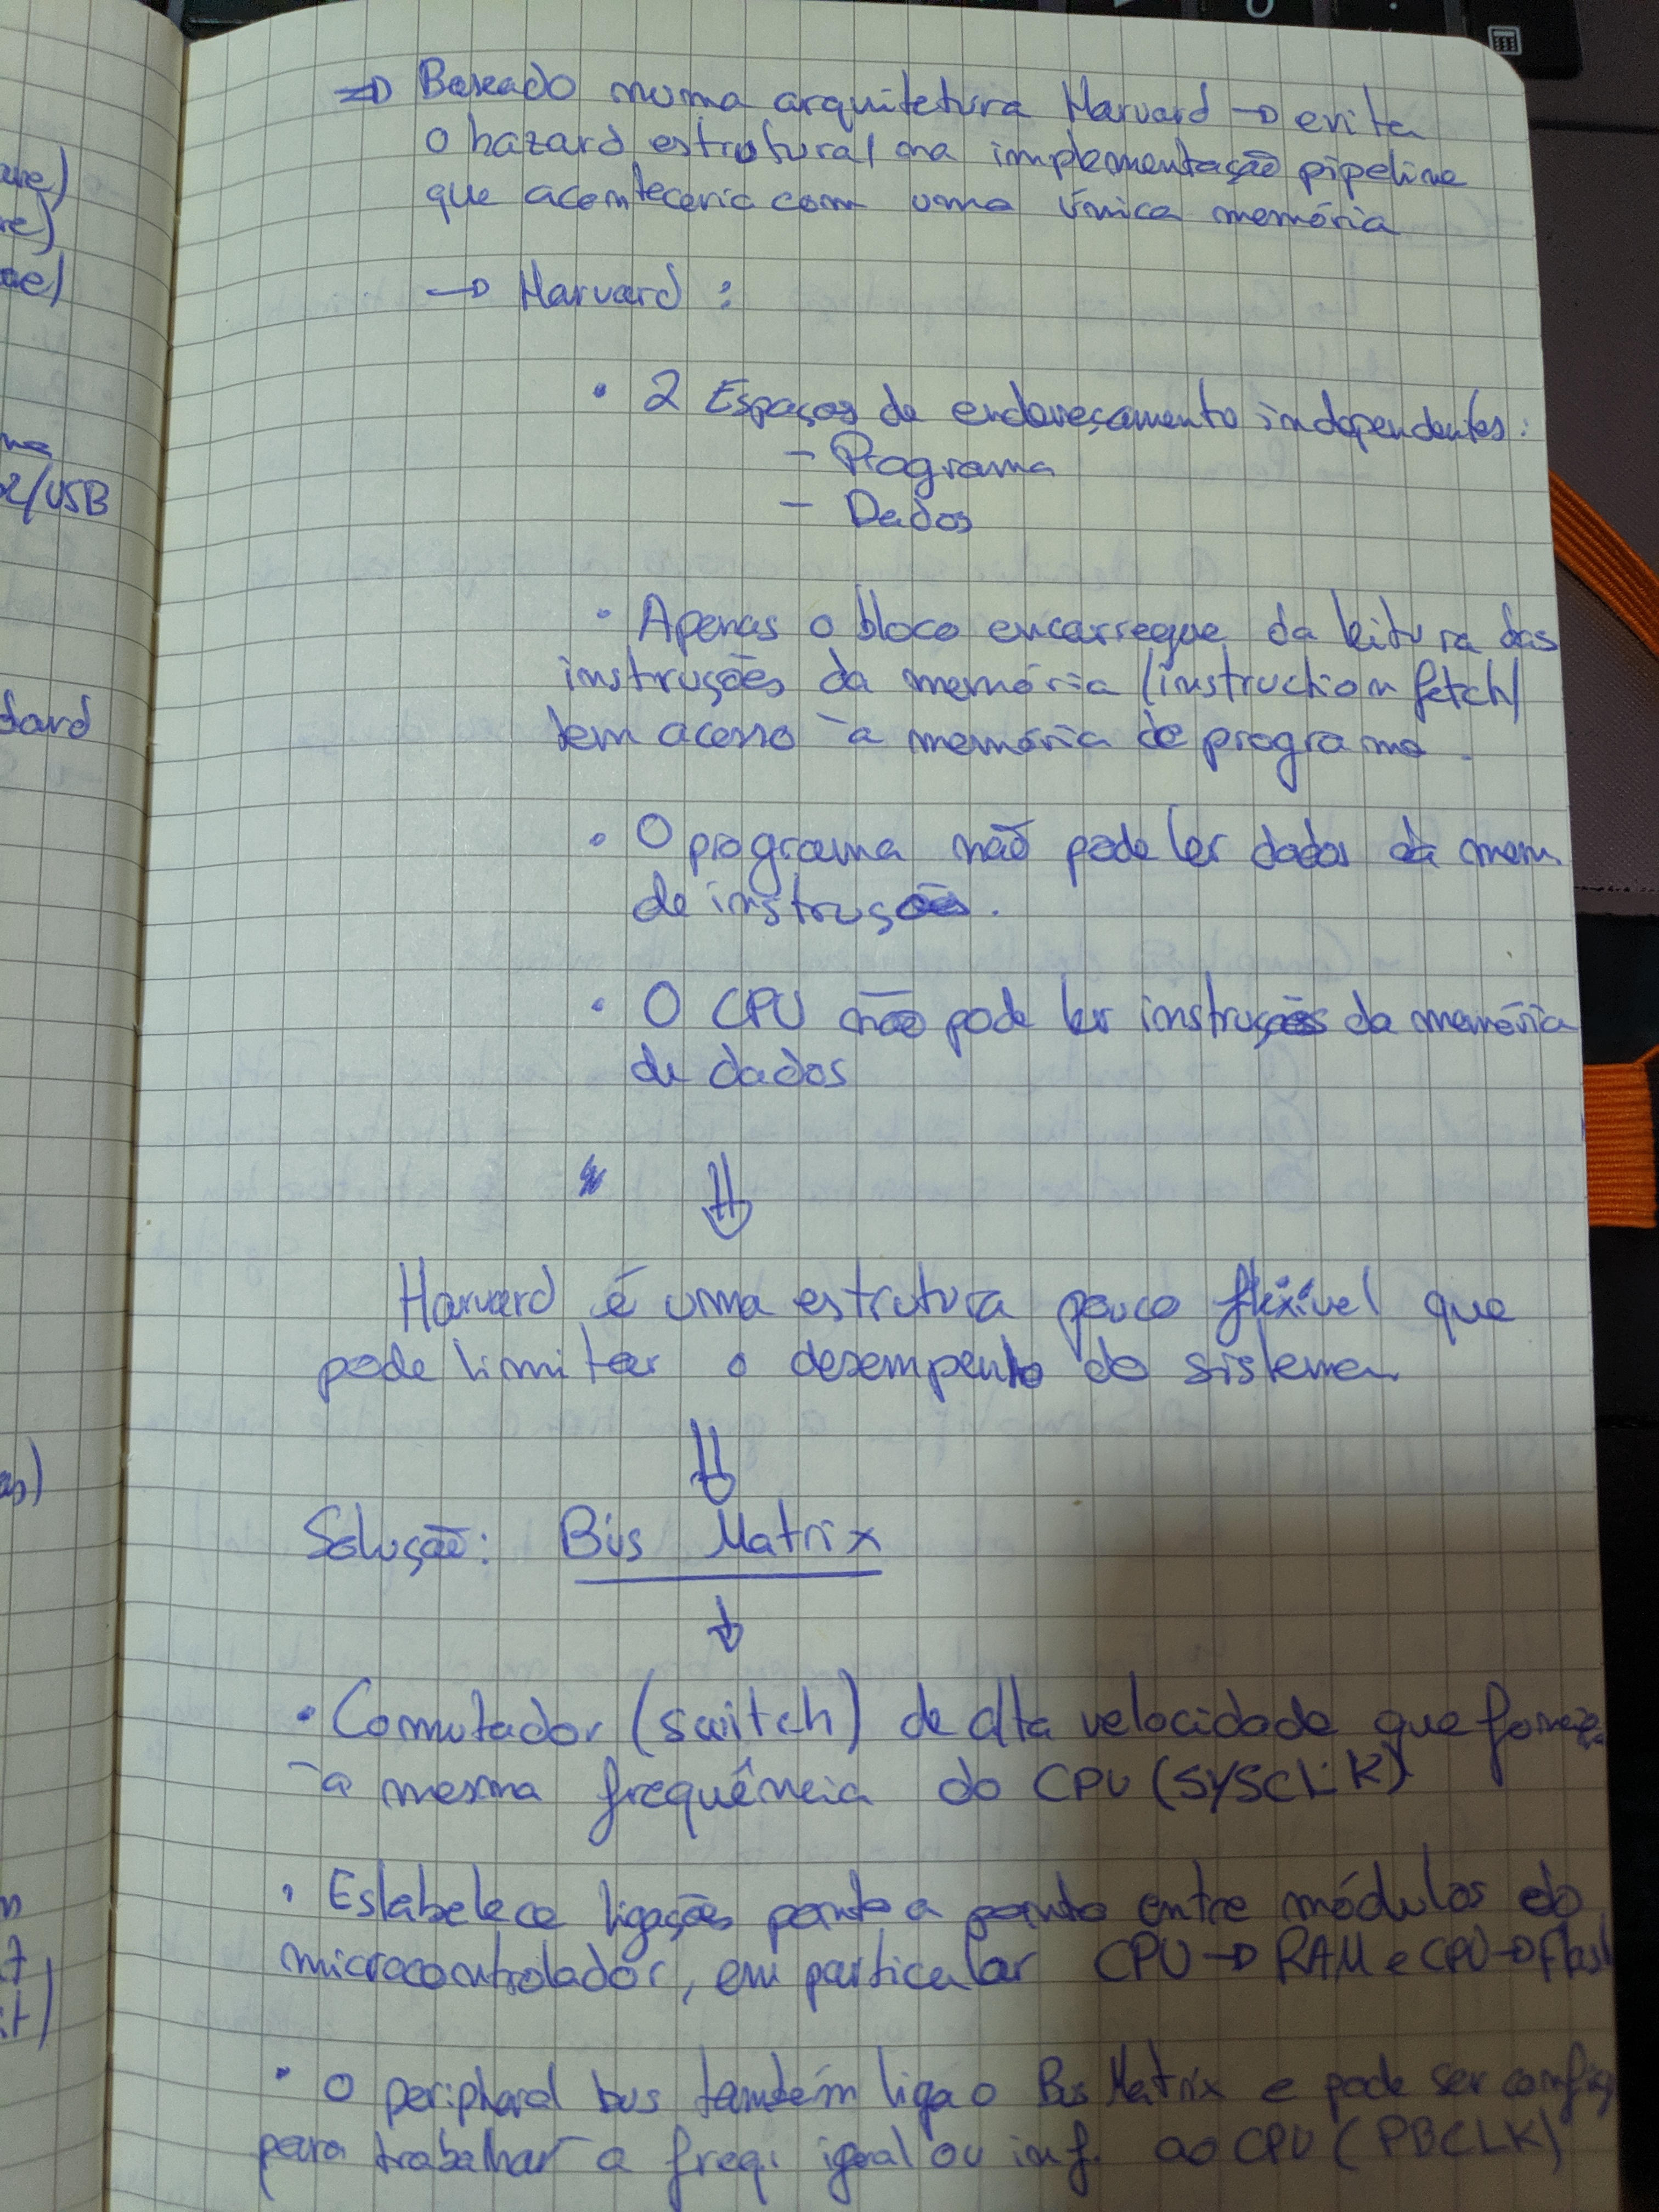 ⇒ Baseado numa arquitetura Harvard → evita
o hazard estrutural na implementação pipeline
que aconteceria com uma única memória
→ Harvard :
• 2 Espaços de endereçamento independentes:
- Programa
- Dados
• Apenas o bloco encarregue da leitura das
instruções da memória (instruction fetch)
tem acesso à memória de programa.
• O programa não pode ler dados da mem
de instruções.
• O CPU não pode ler instruções da memória
de dados
⇓
Harvard é uma estrutura pouco flexível que
pode limitar o desempenho do sistema
⇓
Solução: Bus Matrix
↓
• Comutador (switch) de alta velocidade que
à mesma frequência do CPU (SYSCLK)
• Estabelece ligações ponto a ponto entre módulos do
microcontrolador, em particular CPU → RAM e CPU → Flash
• O peripheral bus também liga o Bus Matrix e pode ser config
para trabalhar a freq. igual ou inf. ao CPU (PBCLK)
2/USB
dard